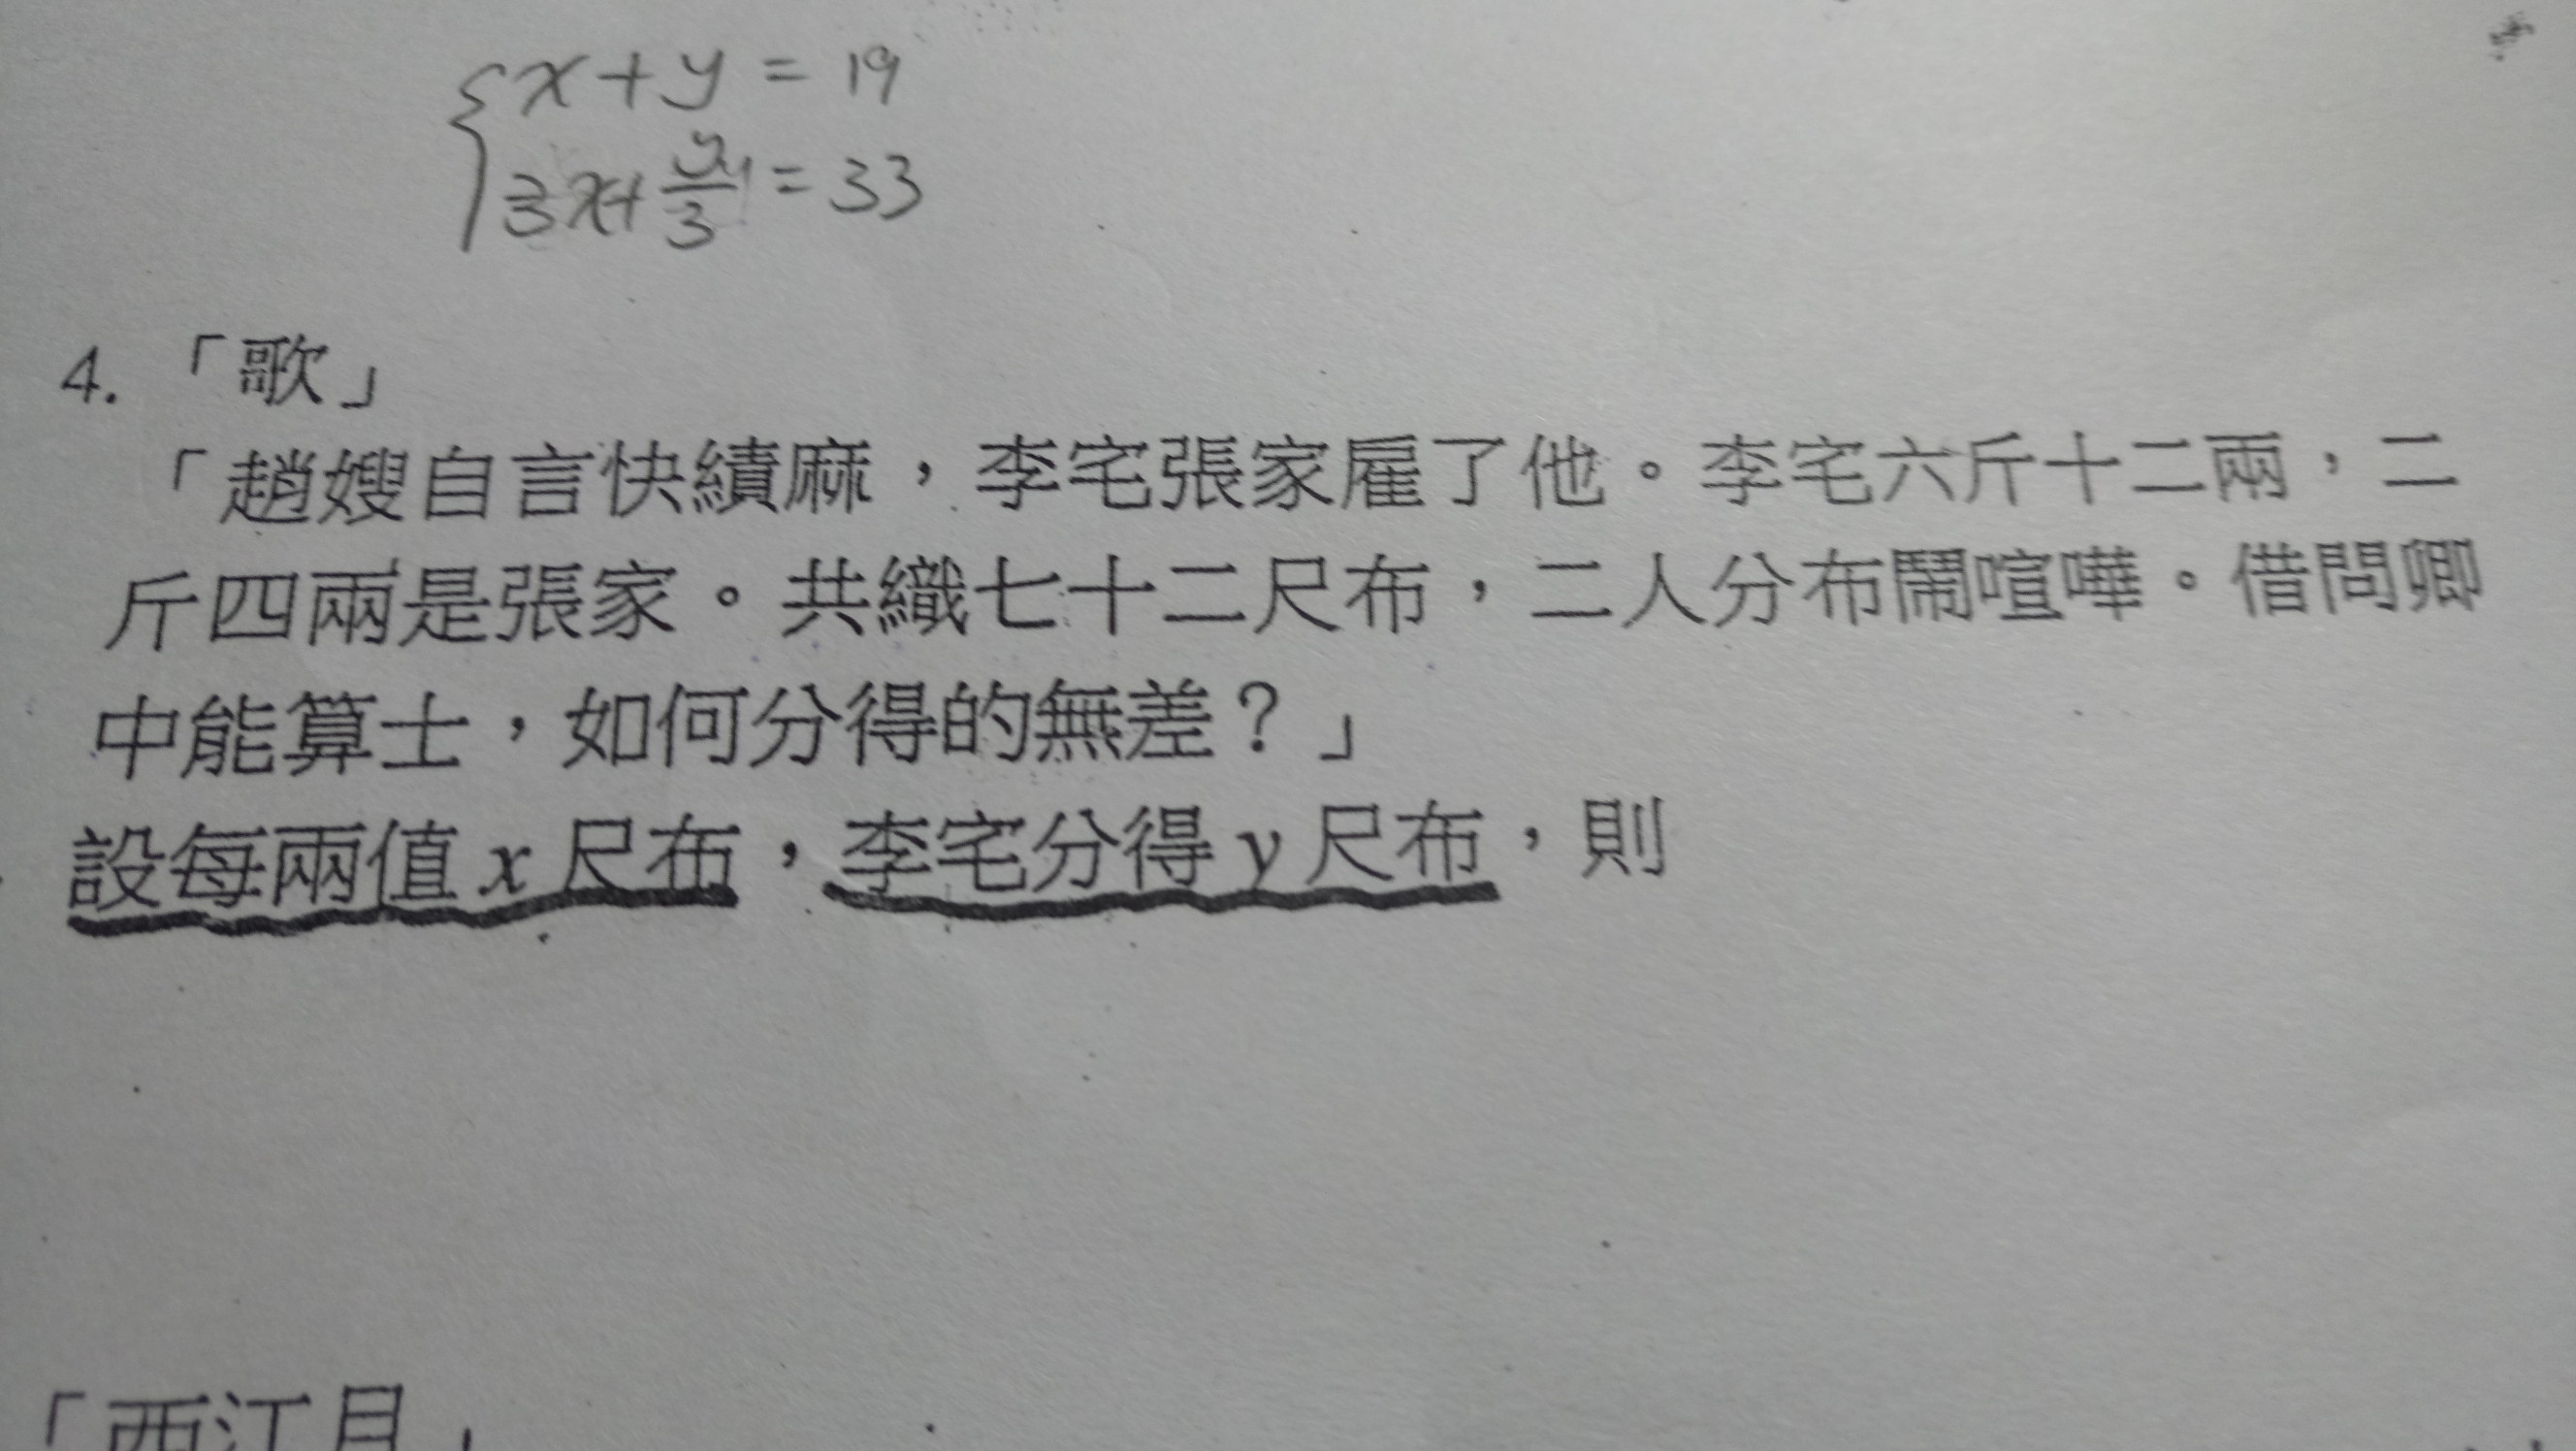 x + y = 19
3x + y/3 = 33
4. 「歌」
「趙嫂自言快績麻，李宅張家雇了他。李宅六斤十二兩，二
斤四兩是張家。共織七十二尺布，二人分布鬧喧嘩。借問卿
中能算士，如何分得的無差？」
設每兩值 x 尺布，李宅分得 y 尺布，則
「西江月」